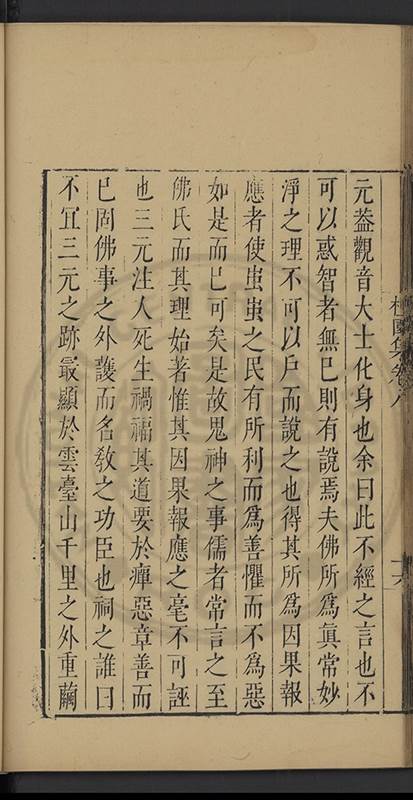 元蓋觀音大士化身也余曰此不經之言也不
可以惑智者無已則有說焉夫佛所爲眞常妙
淨之理不可以戶而說之也得其所爲因果報
應者使蚩蚩之民有所利而爲善懼而不爲惡
如是而已可矣是故鬼神之事儒者常言之至
佛氏而其理始著惟其因果報應之毫不可誣
也三元注人死生禍福其道要於癉惡章善而
已固佛事之外護而名教之功臣也祠之誰曰
不宜三元之跡最顯於雲臺山千里之外重繭